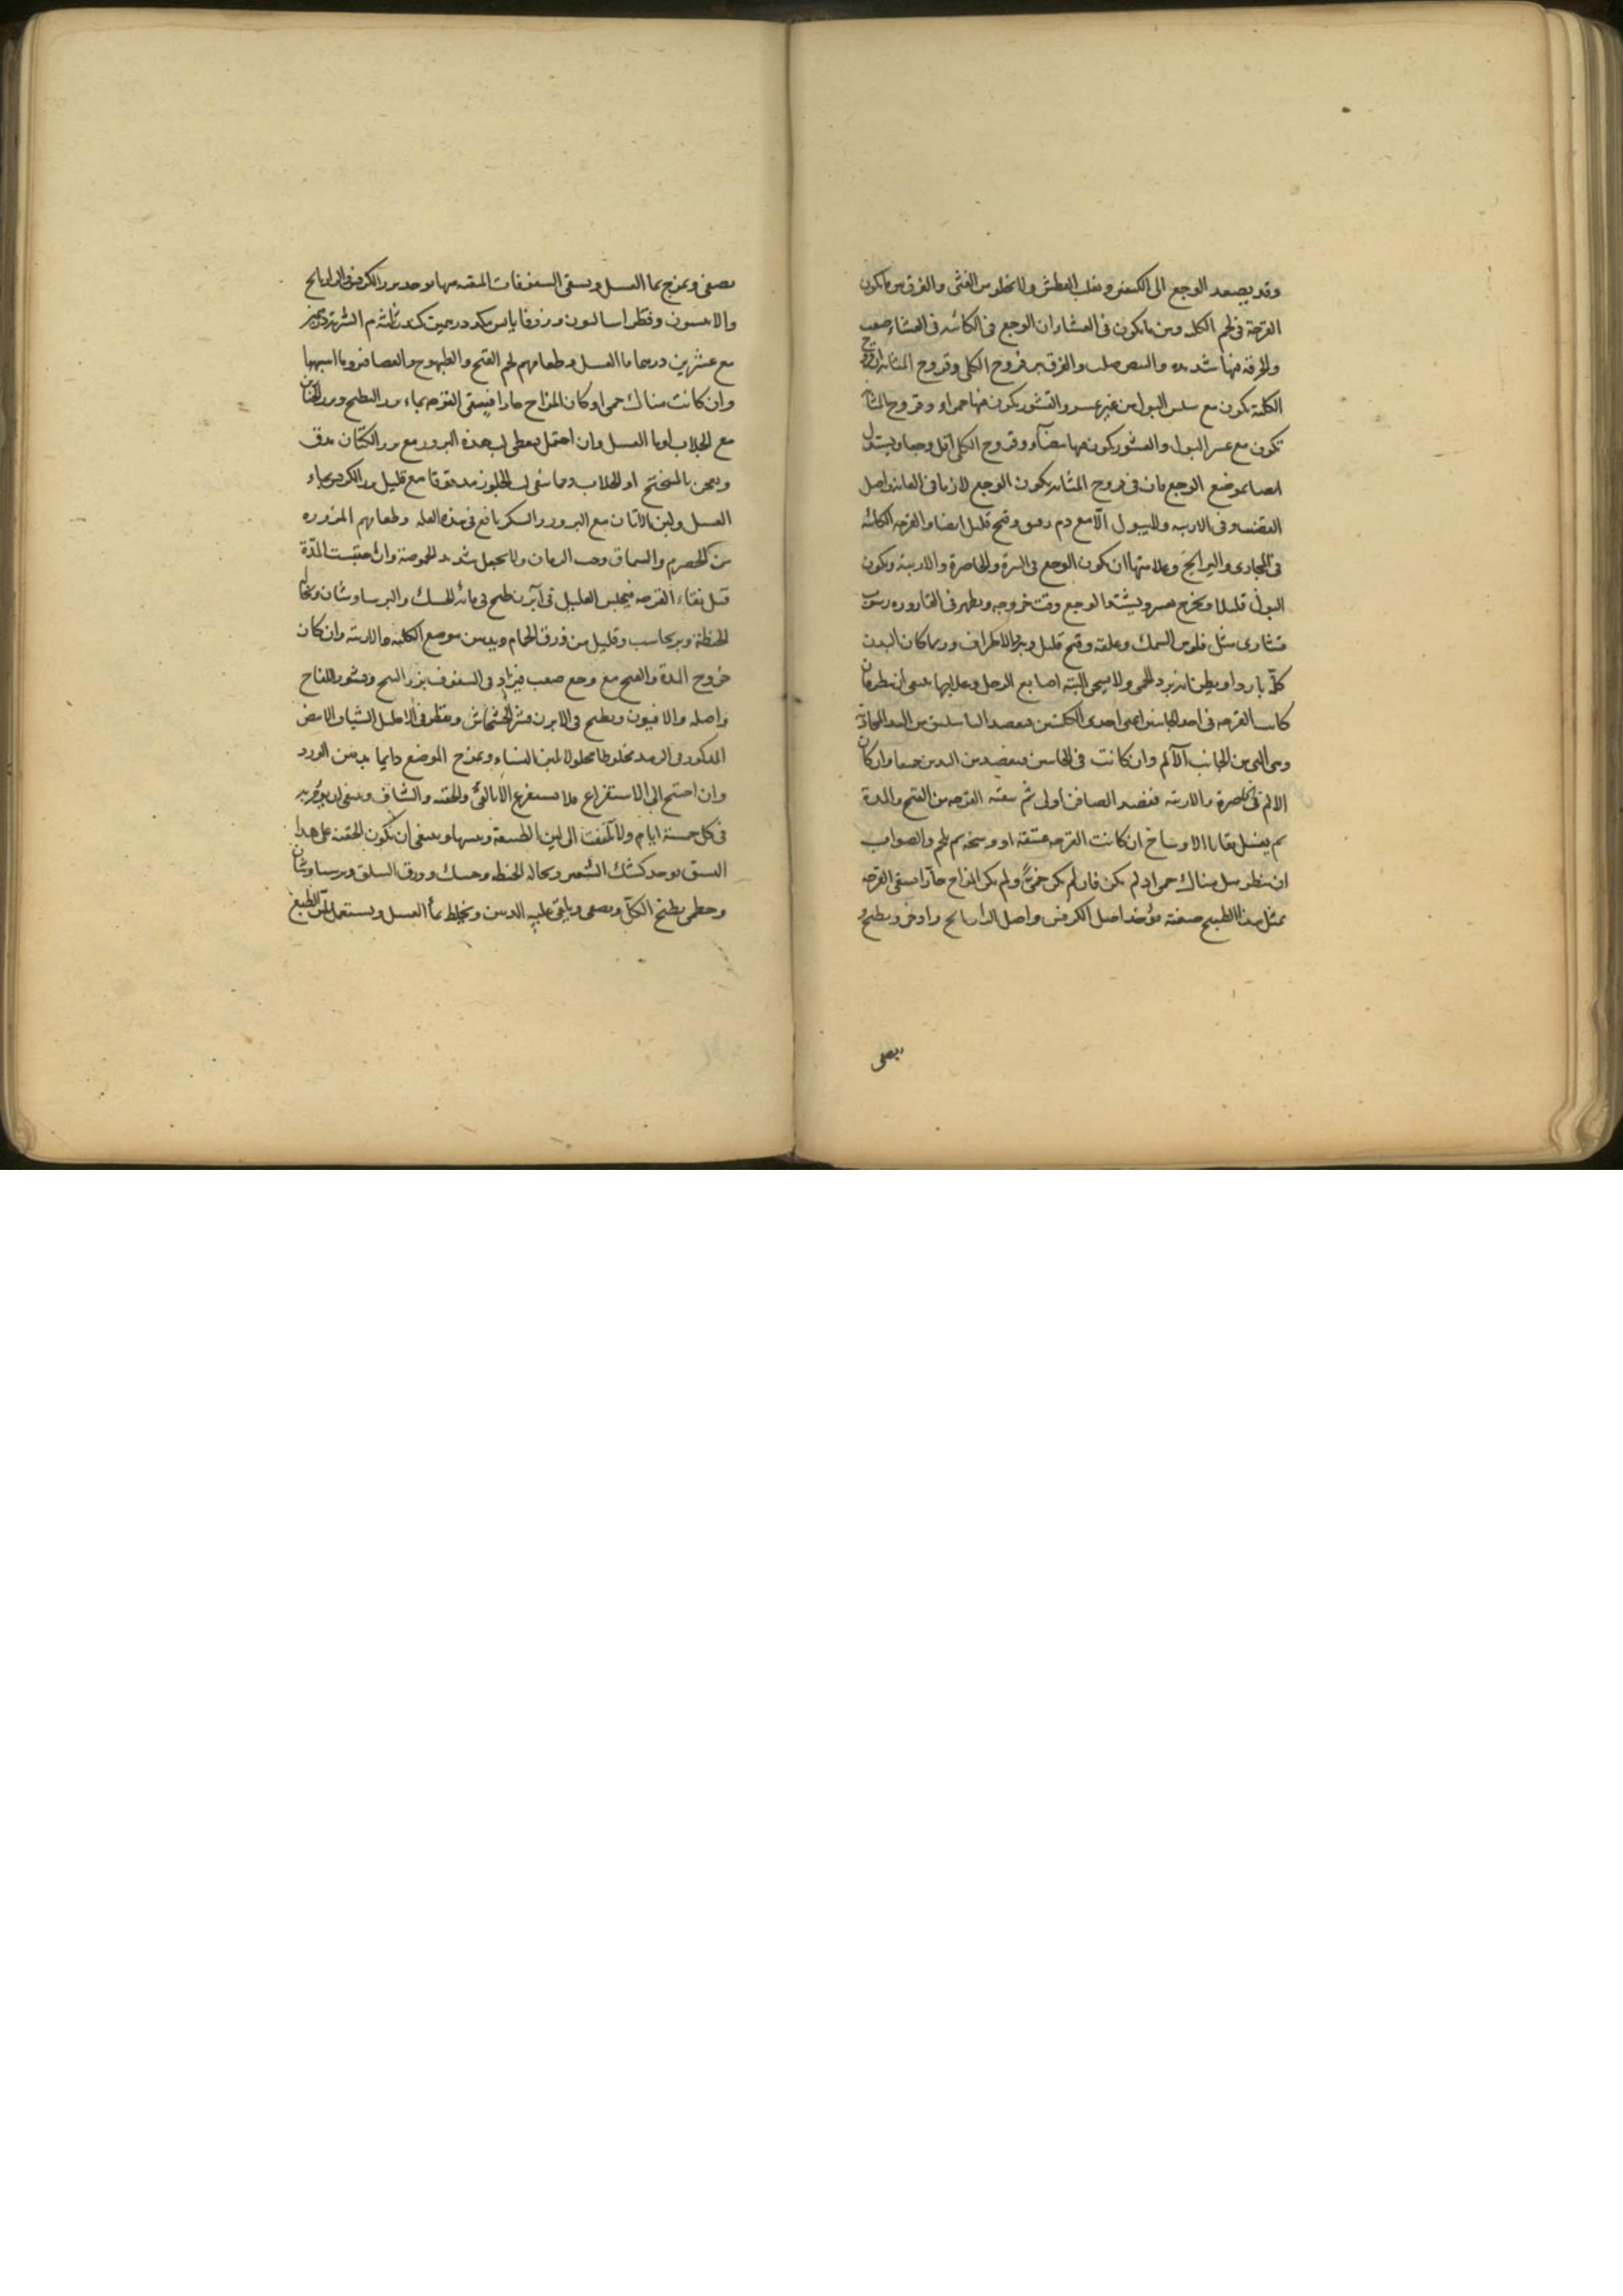 وقد يصعد الوجع الى الكتفين ويغلب العطش ولا يخلو من الغثى والفرق بين ما يكون
القرحة فى لحم الكلية وبين ما يكون فى الغشاء ان الوجع فى الكائنة فى الغشاء صعب
والحرقة فيها شديدة والنبض صلب والفرق بين قروح الكلى وقروح المثانة ان قروح
الكلية يكون مع سلس البول من غير عسر والقشور يكون فيها حمراء وقروح المثانة
تكون مع عسر البول والقشور يكون فيها بيضاء وقروح الكلى اقل وجعا ويستدل
ايضا بموضع الوجع فان فى قروح المثانة يكون الوجع لازما فى العانة واصل
القضيب وفى الاربية ولا يبول الا مع دم رقيق وقيح قليل ايضا والقرحة الكائنة
فى المجارى والبرابخ وعلامتها ان يكون الوجع فى السرة والخاصرة والاربية ويكون
البول قليلا ويخرج بعسر ويشتد الوجع وقت خروجه ويظهر فى القارورة رسوب
قشارى مثل فلوس السمك وعلقة وقيح قليل وبرد الاطراف وربما كان البدن
كله باردا ويظن انه برد الحمى ولا يحمى البتة اصابع الرجل وعلاجها ينبغى ان ينظر فان
كانت القرحة فى احد الجانبين اعنى احدى الكليتين فيفصد الباسليق من اليد المحاذية
وهى التى من الجانب الآلم وان كانت فى الجانبين فيفصد من اليدين جميعا وان كان
الالم فى الخاصرة والاربية ففصد الصافن اولى ثم ينقه القرحة من القيح والمدة
ثم يغسل بقايا الاوساخ ان كانت القرحة عتيقة او وسخة ثم يلحم والصواب
ان ينظر هل هناك حمى او لم يكن فان لم يكن حمى ولم يكن المزاج حارا فيسقى القرحة
بمثل هذا الطبيخ صفته يؤخذ اصل الكرفس واصل الرازيانج واذخر ويطبخ و
يصفى
يصفى ويمزج بماء العسل ويسقى السفوفات المنقية منها يوخذ بزر الكرفس والرازيانج
والانيسون وفطراساليون وزوفا يابس مكد درهمين كندر ثلثة م الشربة درهمين
مع عشرين درهما ماء العسل وطعامهم لحم القبج والطيهوج والعصافير وما اشبهها
وان كانت هناك حمى او كان المزاج حارا فيسقى القرحة بماء بزر البطيخ وبزر الخيار
مع الجلاب او ماء العسل وان احتمل يعطى لب هذه البزور مع بزر الكتان يدق
ويعجن بالميبختج او الجلاب ومما ينقى لب الجلوز مدقوقا مع قليل بزر الكرفس بماء
العسل ولبن الاتان مع البزور والسكر نافع فى هذه العلة وطعامهم المزوره
من الحصرم والسماق وحب الرمان ولا يجعل شديد الحموضة وان احتبست المدة
قبل نقاء القرحة فيجلس العليل فى آبزن طبخ فى مائه الحسك والبرسياوشان ونخالة
الحنطة وبرنجاسب وقليل من ذرق الحمام ويدهن موضع الكلية والاربية وان كان
خروج المدة والقيح مع وجع صعب فيزاد فى السفوف بزر البنج وقشور اللفاح
واصله والافيون ويطبخ فى الابزن قشر الخشخاش ويقطر فى الاحليل الشياف الابيض
المذكور فى الرمد مخلوطا محلولا بلبن النساء ويمزج الموضع دايما بدهن الورد
وان احتيج الى الاستفراغ فلا يستفرغ الا بالقئ والحقنة والشياف وينبغى ان
فى كل خمسة ايام ولا تلتفت الى لين الطبيعة ويبسها وينبغى ان تكون الحقنة على هذا
النسق يوخذ كشك الشعير ونخالة الحنطة وحسك وورق السلق وبرسياوشان
وخطمى يطبخ الكل ويصفى ويلقى عليه الدهن ويخلط بماء العسل ويستعمل